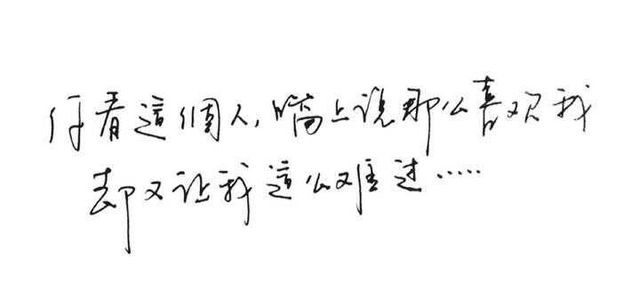 你看這個人，嘴上说那么喜欢我
却又让我這么难过……